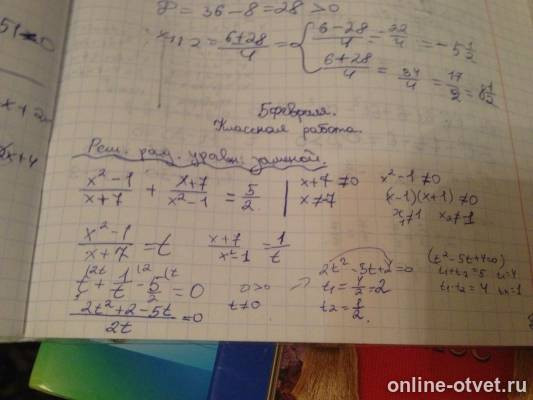 D = 36 - 8 = 28 > 0
x₁,₂ = (6±28)/4 = { (6-28)/4 = -22/4 = -5 1/2
(6+28)/4 = 34/4 = 17/2 = 8 1/2
6 февраля.
Классная работа.
Реш. рац. уравн. заменой.
(x²-1)/(x+7) + (x+7)/(x²-1) = 5/2 | x+7 ≠0 x²-1 ≠0
x≠7 (x-1)(x+1) ≠0
x₁≠1 x₂≠1
(x²-1)/(x+7) = t (x+7)/(x²-1) = 1/t
t + 1/t - 5/2 = 0 t≠0
(2t²+2-5t)/2t = 0
2t²-5t+2=0
t₁ = 4/2 = 2
t₂ = 1/2.
(t²-5t+4=0)
t₁+t₂=5 t₁=4
t₁·t₂=4 t₂=1
online-otvet.ru